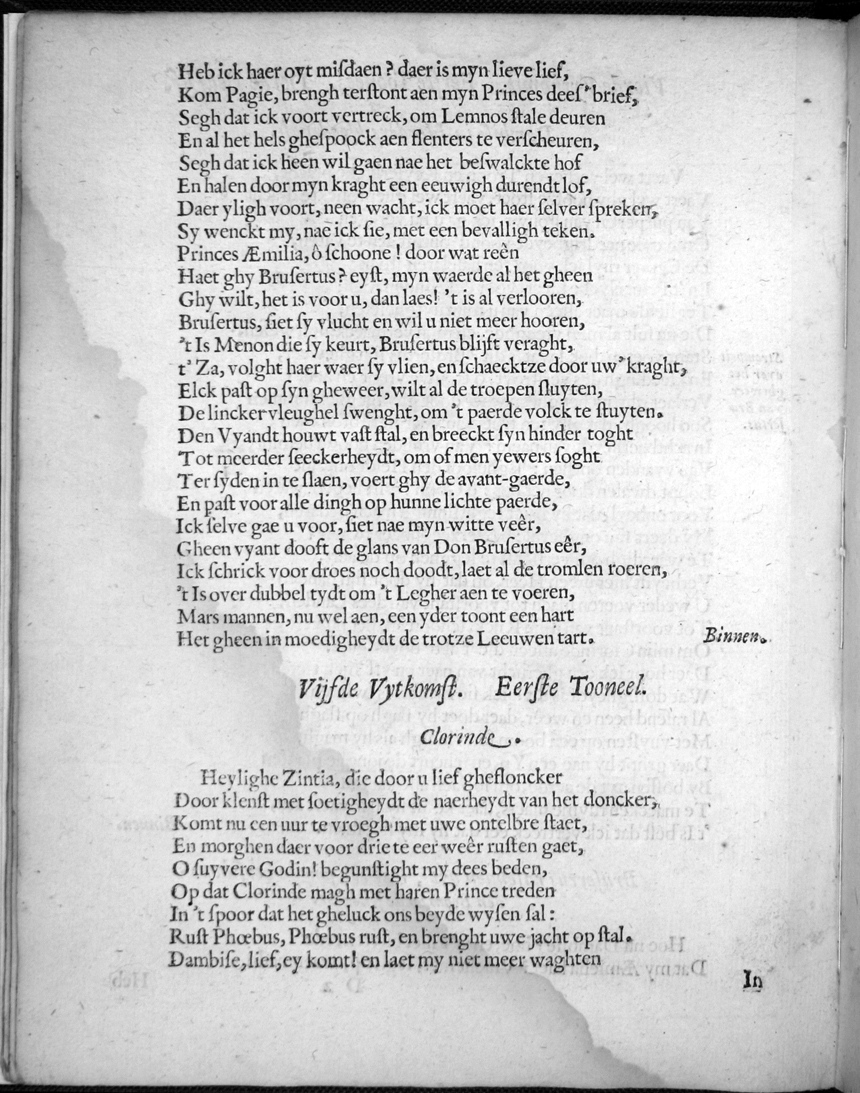 Heb ick haer oyt miſdaen ? daer is myn lieve lief,
Kom Pagie, brengh terſtont aen myn Princes deeſ' brief,
Segh dat ick voort vertreck, om Lemnos ſtale deuren
En al het hels gheſpoock aen flenters te verſcheuren,
Segh dat ick heen wil gaen nae het beſwalckte hof
En halen door myn kraght een eeuwigh durendt lof,
Daer yligh voort, neen wacht, ick moet haer ſelver ſpreken,
Sy wenckt my, nae ick ſie, met een bevalligh teken.
Princes Æmilia, ô ſchoone ! door wat reên
Haet ghy Bruſertus ? eyſt, myn waerde al het gheen
Ghy wilt, het is voor u, dan laes! 't is al verlooren,
Bruſertus, ſiet ſy vlucht en wil u niet meer hooren,
't Is Menon die ſy keurt, Bruſertus blijft veraght,
t' Za, volght haer waer ſy vlien, en ſchaecktze door uw' kraght,
Elck paſt op ſyn gheweer, wilt al de troepen ſluyten,
De lincker vleughel ſwenght, om 't paerde volck te ſtuyten.
Den Vyandt houwt vaſt ſtal, en breeckt ſyn hinder toght
Tot meerder ſeeckerheydt, om of men yewers ſoght
Ter ſyden in te ſlaen, voert ghy de avant-gaerde,
En paſt voor alle dingh op hunne lichte paerde,
Ick ſelve gae u voor, ſiet nae myn witte veêr,
Gheen vyant dooft de glans van Don Bruſertus eêr,
Ick ſchrick voor droes noch doodt, laet al de tromlen roeren,
't Is over dubbel tydt om 't Legher aen te voeren,
Mars mannen, nu wel aen, een yder toont een hart
Het gheen in moedigheydt de trotze Leeuwen tart. Binnen.
Vijfde Vytkomſt. Eerſte Tooneel.
Clorinde.
Heylighe Zintia, die door u lief ghefloncker
Door klenſt met ſoetigheydt de naerheydt van het doncker,
Komt nu een uur te vroegh met uwe ontelbre ſtaet,
En morghen daer voor drie te eer weêr ruſten gaet,
O ſuyvere Godin! begunſtight my dees beden,
Op dat Clorinde magh met haren Prince treden
In 't ſpoor dat het gheluck ons beyde wyſen ſal :
Ruſt Phœbus, Phœbus ruſt, en brenght uwe jacht op ſtal.
Dambiſe, lief, ey komt! en laet my niet meer waghten
In